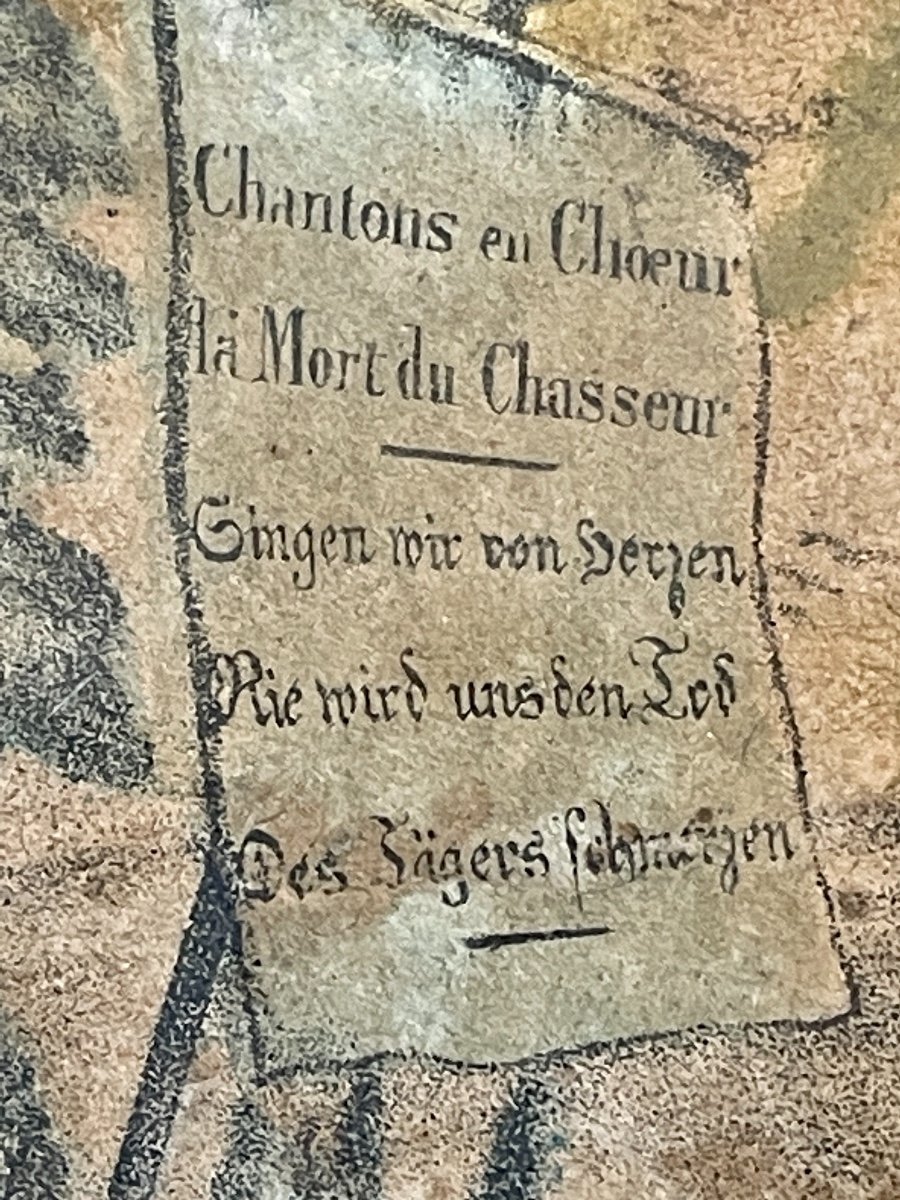 Chantons en Choeur
la Mort du Chasseur
Singen wir von Herzen
Nie wird uns den Tod
Des Jägers schmerzen